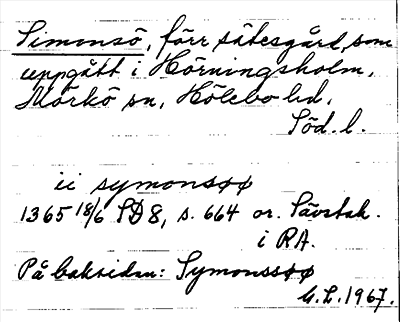 Simonsö, förr sätesgård, som
uppgått i Hörningsholm,
Mörkö sn, Hölebo hd,
Söd. l.
ii symonsøø
1365 18/6 SD 8, s. 664 or. Sävstah.
i RA.
På baksidan: Symonssøø
G.L. 1967.